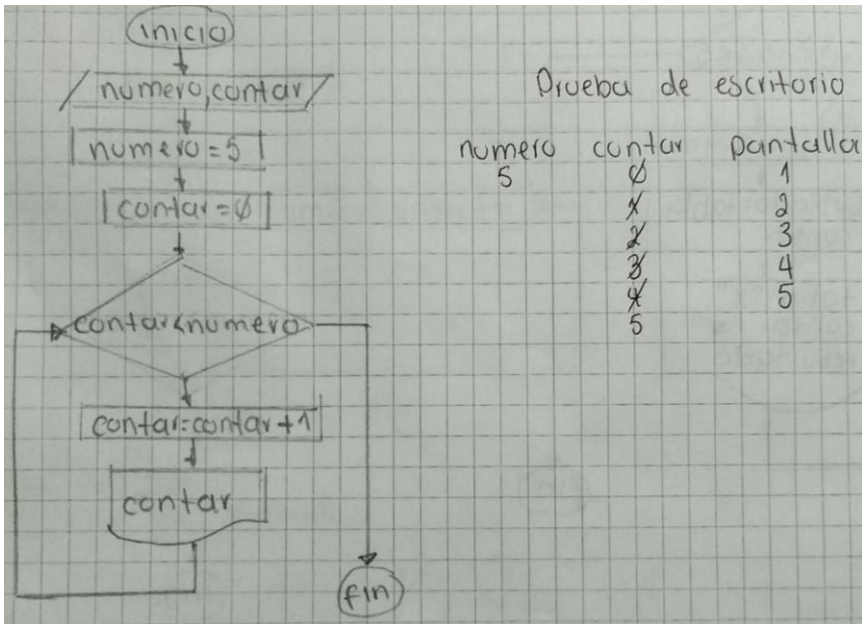 inicio
numero,contar
numero=5
contar=0
contar<numero
contar=contar+1
contar
fin
Prueba de escritorio
numero contar pantalla
5 0 1
1 2
2 3
3 4
4 5
5